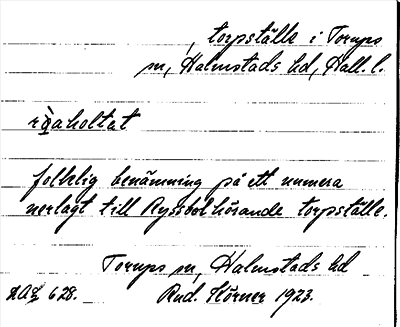 , torpställe i Torups
sn, Halmstads hd, Hall. l.
rı̀ʒaholtat
folklig benämning på ett numera
nerlagt till Ryssbol hörande torpställe.
Torups sn, Halmstads hd
DAL 628. Rud. Störner 1923.